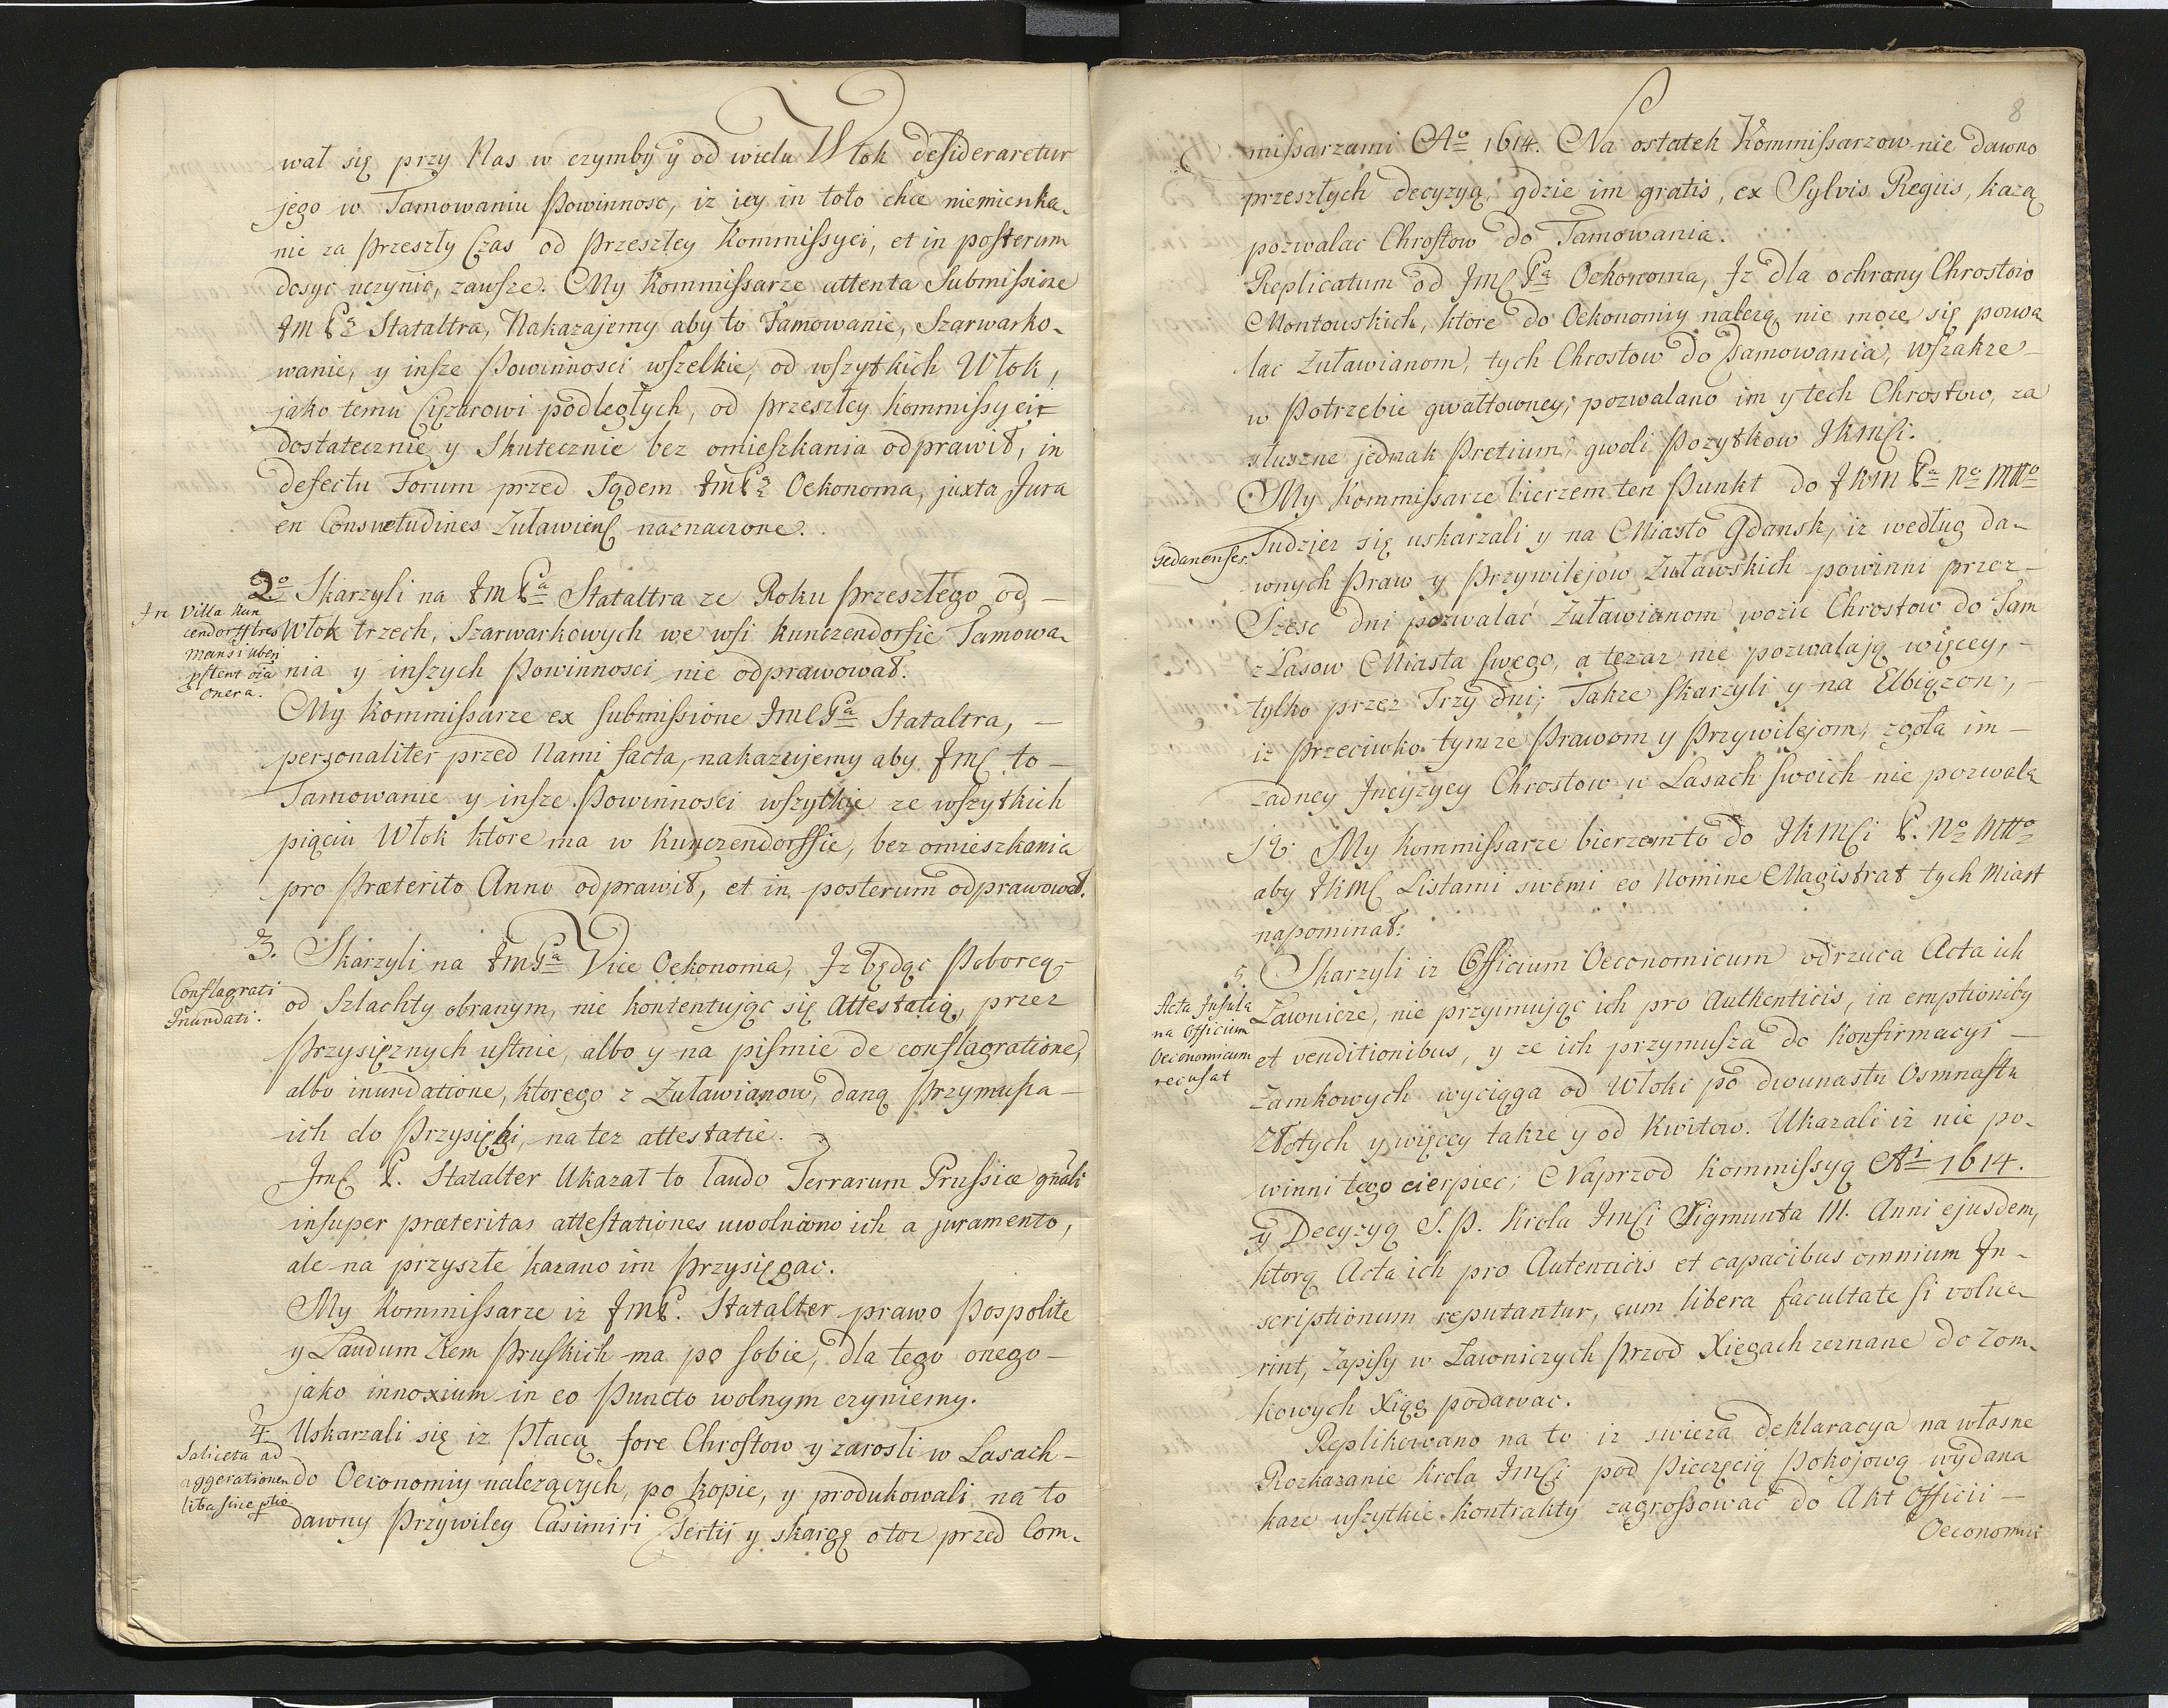 wał się przy Nas w czymby y od wielu Włok desideraretur
jego w Tamowaniu Powinnosc, iz iey in toto chce niemieszka-
nie za Przeszły Czas od Przeszłey Kommissyei, et in posterum
dosyc uczynic, zawsze. My Kommissarze attenta Submissione
Im Pa Stataltra, Nakazajemy aby to Tamowanie, Szarwarko-
wanie, y insze Powinnosci wszelkie, od wszytkich Włok,
jako temu Cięzarowi podległych, od przeszłey Kommissyei
dostatecznie y Skutecznie bez omieszkania odprawił, in
defectu Forum przed Sądem Im Pa Oekonoma, juxta Jura
en Consvetudines Zuławienſ naznaczone.
2o Skarzyli na Im Pa Stataltra ze Roku Przeszłego od
In Villa Kun
cendorff tres
Mansi uberi
onera.
Włok trzech, Szarwarkowych we wsi Kunczendorfie Tamowa-
nia y inszych Powinnosci nie odprawował.
My Kommissarze ex submissione Imc Pa Stataltra,
personaliter przed Nami facta, nakazujemy aby Imſ to
Tamowanie y insze Powinnosci wszytkie ze wszytkich
pięciu Włok ktore ma w Kunczendorffie, bez omieszkania
pro Præterito Anno odprawił, et in posterum odprawował.
3. Skarzyli na Im Pa Vice Oekonoma, Iz będąc Poborcą
Conflagrati
Inundati.
od Szlachty obranym, nie kontentując się Attestatią, przez
Przysięznych ustnie, albo y na pismie de conflagratione,
albo inundatione, ktorego z Zuławianow, daną Przymusza
ich do Przysięgi, na tez attestatie.
Imſ P. Statalter Ukazał to laudo Terrarum Prussiæ gñali
insuper præteritas attestationes uwolniono ich a juramento,
ale na przyszłe kazano im Przysięgac.
My Kommissarze iz Im P. Statalter prawo Pospolite
y Laudum Ziem Pruskich ma po sobie, dla tego onego
jako innoxium in eo Puncto wolnym czyniemy.
4. Uskarzali się iz Płacą fore Chrostow y zarosli w Lasach
Saliceta ad
aggerationem
liba sine ptio
do Oeconomiy nalezących, po kopie, y produkowali na to
dawny Przywiley Casimiri Tertii y skargę o toz przed Com-
8
missarzami Ao 1614. Na ostatek Kommissarzow nie dawno
przeszłych decyzyą, gdzie im gratis, ex Sylvis Regiis, kazą
pozwalac Chrostow do Tamowania.
Replicatum od Imſ Pa Oekonoma, Iz dla ochrony Chrostow
Montouskich, ktore do Oekonomiy nalezą, nie moze się pozwa
lac Zuławianom, tych Chrostow do Tamowania, wszakze
w Potrzebie gwałtowney, pozwalano im y tech Chrostow, za
słuszne jednak Pretium, gwoli Pozytkow IKMſci.
My Kommissarze bierzem ten Punkt do IKM Pa No Mtto
Gedanenses.
Tudziez się uskarzali y na Miasto Gdansk, iz według da-
wnych Praw y Przywilejow Zuławskich powinni przez
Szesc dni pozwalać Zuławianom wozic Chrostow do Tam
z Lasow Miasta swego, a teraz nie pozwalają więcey,
tylko przez Trzy dni; Takze skarzyli y na Elbiązon,
iz Przeciwko tymze Prawom y Przywilejom, zgoła im
zadney Incyzyey Chrostow w Lasach swoich nie pozwalą
My Kommissarze bierzem to do IKMſci P. No Mtto
aby IKMſ Listami swemi eo Nomine Magistrat tych Miast
napominał.
5. Skarzyli iz Officium Oeconomicum odrzuca Acta ich
Acta Insula
na Officium
Oeconomicum
recusat
Ławnicze, nie przyimując ich pro Authenticis, in emptioniby
et venditionibus, y ze ich przymusza do Konfirmacyi
Zamkowych wyciąga od Włoki po dwunastu Osmnastu
Złotych y więcey takze y od Kwitow. Ukazali iz nie po-
winni tego cierpiec; Naprzod Kommissyą Ai 1614.
y Decyzyą S. P. Krola Imſci Zigmunta III. Anni ejusdem,
ktorą Acta ich pro Autenticis et capacibus omnium In-
scriptionum reputantur, cum libera facultate si volue-
rint, Zapisy w Ławniczych Przod Xiegach zeznane do Zam-
kowych Xiąg podawac.
Replikowano na to iz swieza deklaracya na własne
Rozkazanie Krola Imſci pod Pieczęcią Pokojową wydana
kaze wszytkie kontrakty zagrossować do Akt Officii
Oeconomii